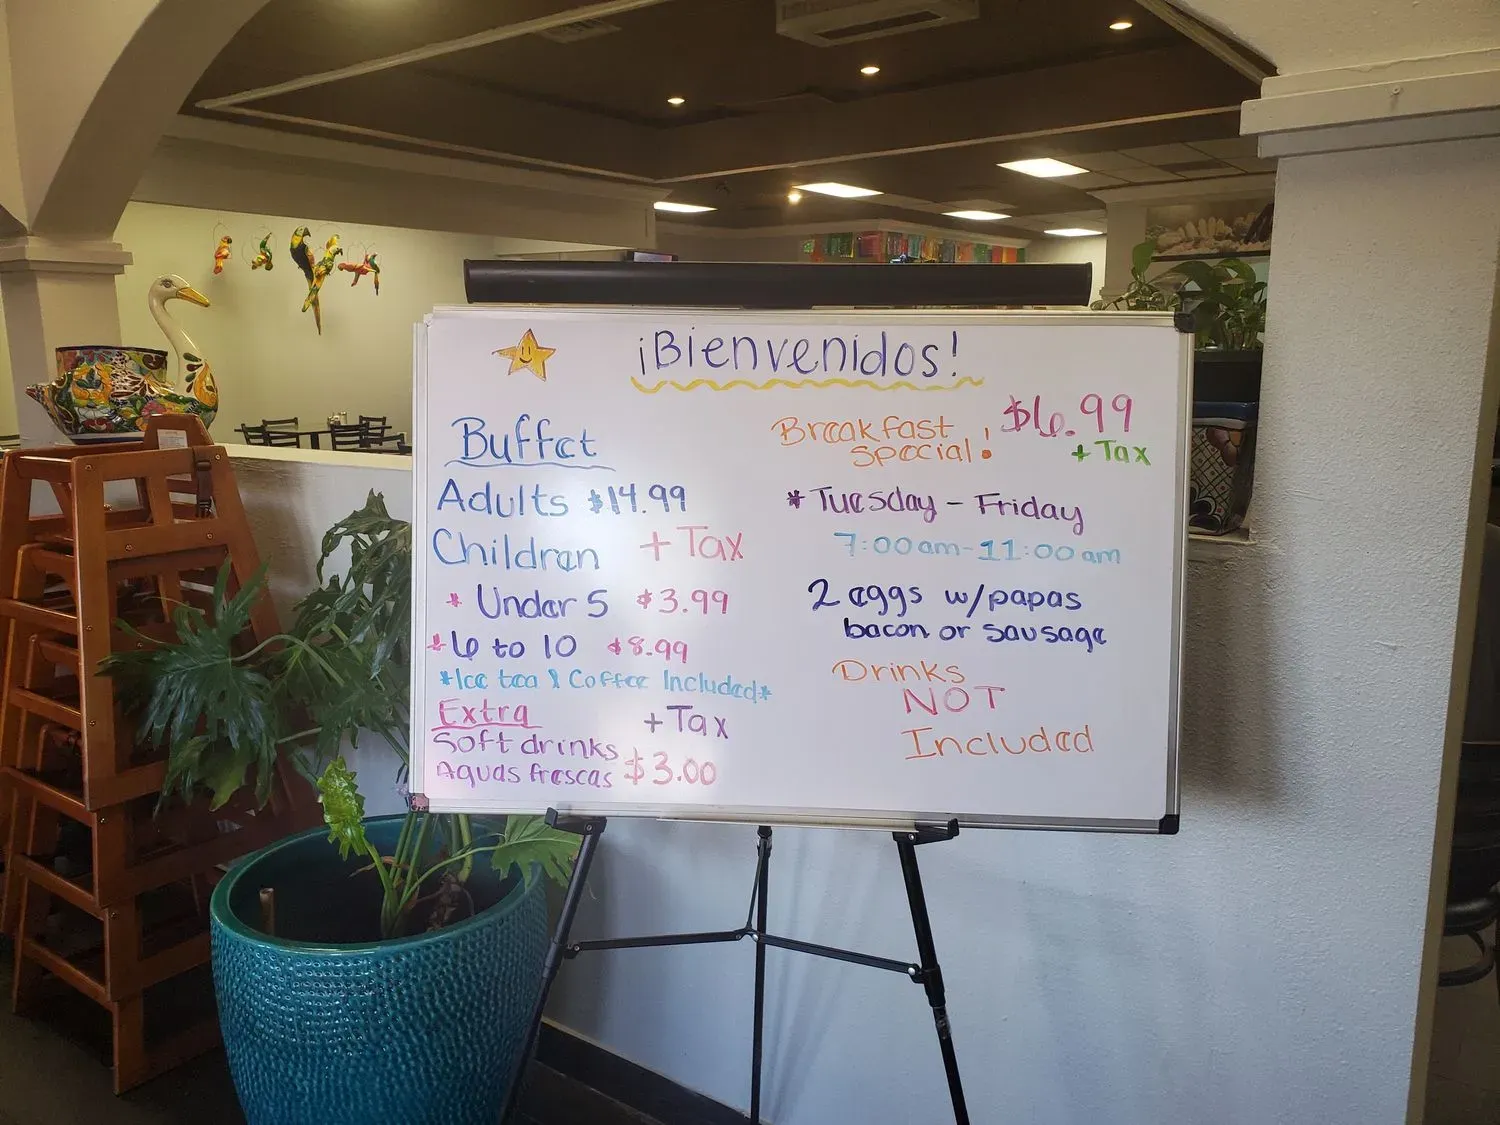 ¡Bienvenidos!
Buffet
Adults $14.99
Children + Tax
* Under 5 $3.99
* 6 to 10 $8.99
*Ice tea & Coffee Included*
Extra + Tax
Soft drinks
Aguas frescas $3.00
Breakfast
special! $6.99
+ Tax
* Tuesday - Friday
7:00am-11:00am
2 eggs w/papas
bacon or sausage
Drinks
NOT
Included